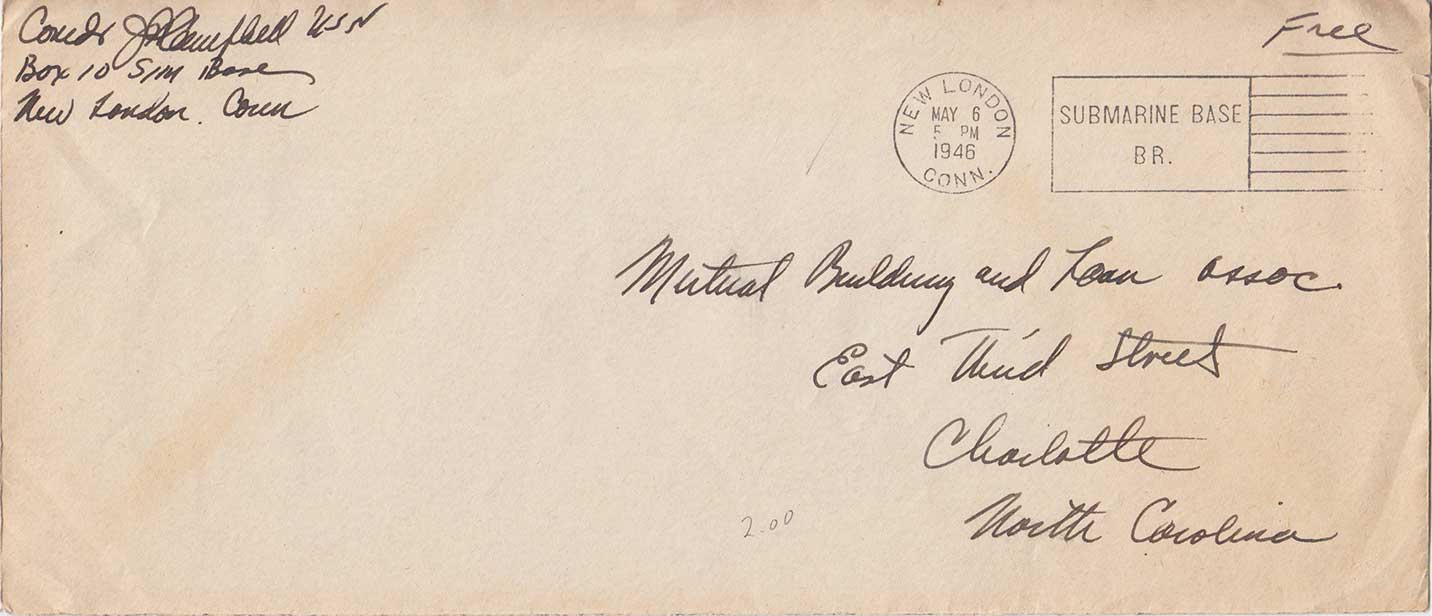 Comdr J P Campbell USN
Box 10 S/M Base
New London. Conn
Free
NEW LONDON
MAY 6
5 PM
1946
CONN.
SUBMARINE BASE
BR.
Mutual Building and Loan Assoc.
East Third Street
Charlotte
North Carolina
2.00